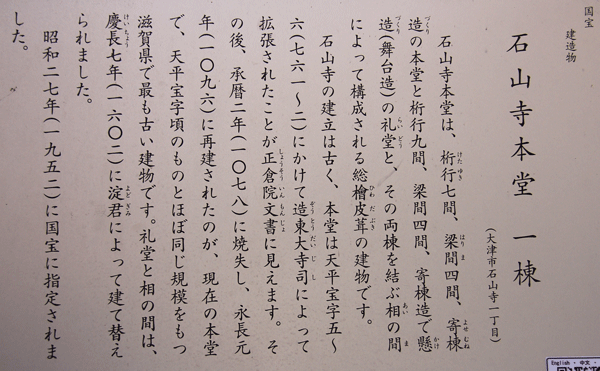 国宝
建造物
石山寺本堂 一棟
(大津市石山寺一丁目)
石山寺本堂は、桁行七間、梁間四間、寄棟
造の本堂と桁行九間、梁間四間、寄棟造で懸
造(舞台造)の礼堂と、その両棟を結ぶ相の間
によって構成される総檜皮葺の建物です。
石山寺の建立は古く、本堂は天平宝字五～
六(七六一～二)にかけて造東大寺司によって
拡張されたことが正倉院文書に見えます。そ
の後、承暦二年(一〇七八)に焼失し、永長元
年(一〇九六)に再建されたのが、現在の本堂
で、天平宝字頃のものとほぼ同じ規模をもつ
滋賀県で最も古い建物です。礼堂と相の間は、
慶長七年(一六〇二)に淀君によって建て替え
られました。
昭和二七年(一九五二)に国宝に指定されま
した。
English・中文・